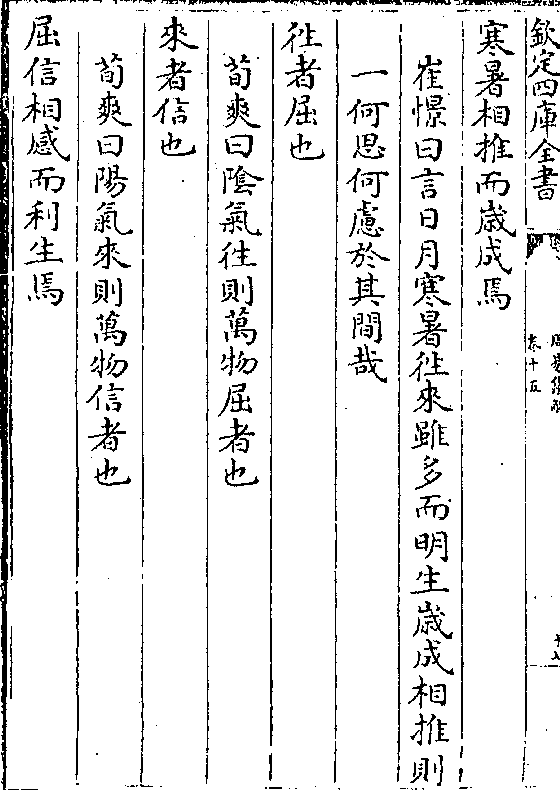 欽定四庫全書
卷十五
寒暑相推而歲成焉
崔憬曰言日月寒暑徃來雖多而明生歲成相推則
一何思何慮於其間哉
徃者屈也
荀爽曰陰氣徃則萬物屈者也
來者信也
荀爽曰陽氣來則萬物信者也
屈信相感而利生焉